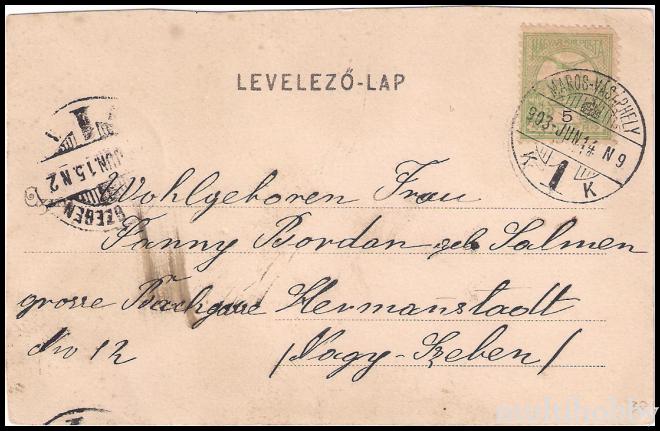 MAGYAR KIR. POSTA
5
MAROS-VÁSÁRHELY
903 JUN. 14 N 9
K 1 K
LEVELEZŐ-LAP
JUN. 15. N 2
SZEBEN
Wohlgeboren Frau
Fanny Bordan geb. Salmen
grosse Bachgasse Hermannstadt
No 12 /Nagy-Szeben/
multihobby